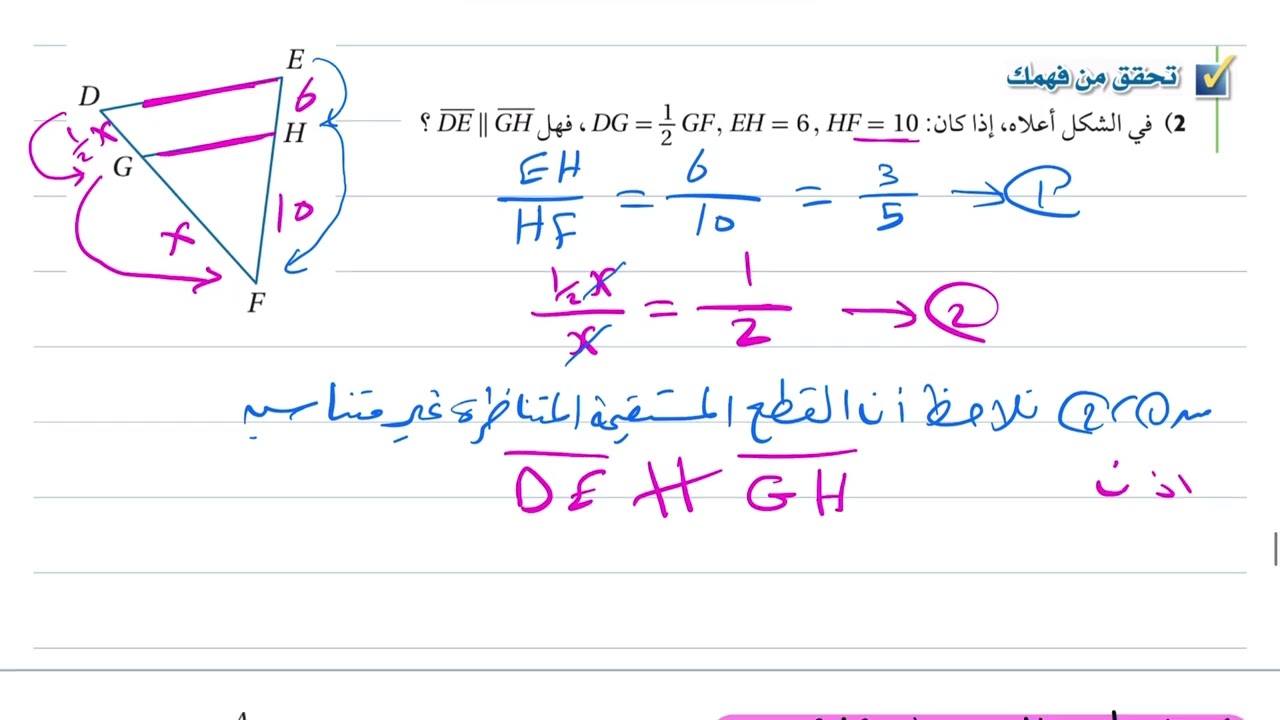 تحقق من فهمك
2) في الشكل أعلاه، إذا كان: DG = 1/2 GF, EH = 6, HF = 10 ، فهل DE ∥ GH ؟
D
E
6
H
1/2 x
G
x
10
F
EH/HF = 6/10 = 3/5 → 1
1/2 x / x = 1/2 → 2
من 1 و 2 نلاحظ أن القطع المستقيمة المتناظرة غير متناسبه
اذن
DE ∦ GH